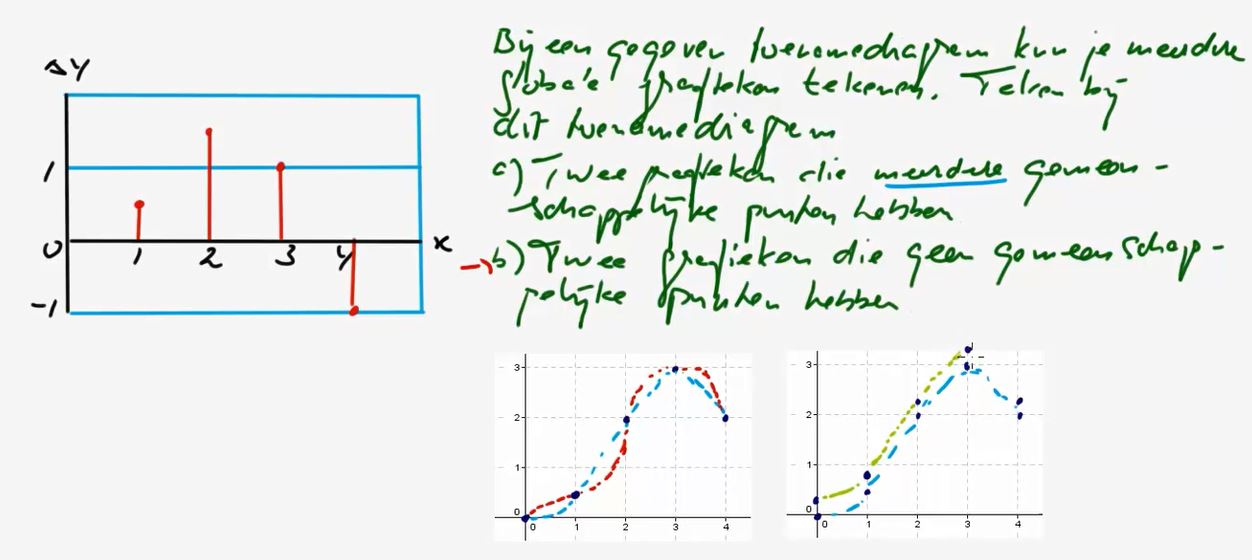 Δy
1
0
-1
1 2 3 4 x
Bij een gegeven toenamediagram kun je meerdere
globale grafieken tekenen. Teken bij
dit toenamediagram
a) Twee grafieken die meerdere gemeen-
schappelijke punten hebben
→ b) Twee grafieken die geen gemeenschap-
pelijke punten hebben
3
2
1
0
0 1 2 3 4
3
2
1
0
0 1 2 3 4